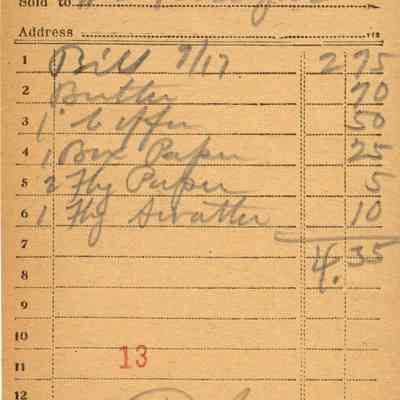 Sold to
Address
1 Bill 9/17 2 75
2 Butter 70
3 1 Coffee 50
4 1 Box Paper 25
5 2 Fly Paper 5
6 1 Fly Swatter 10
7 4.35
8
9
10
13
11
12